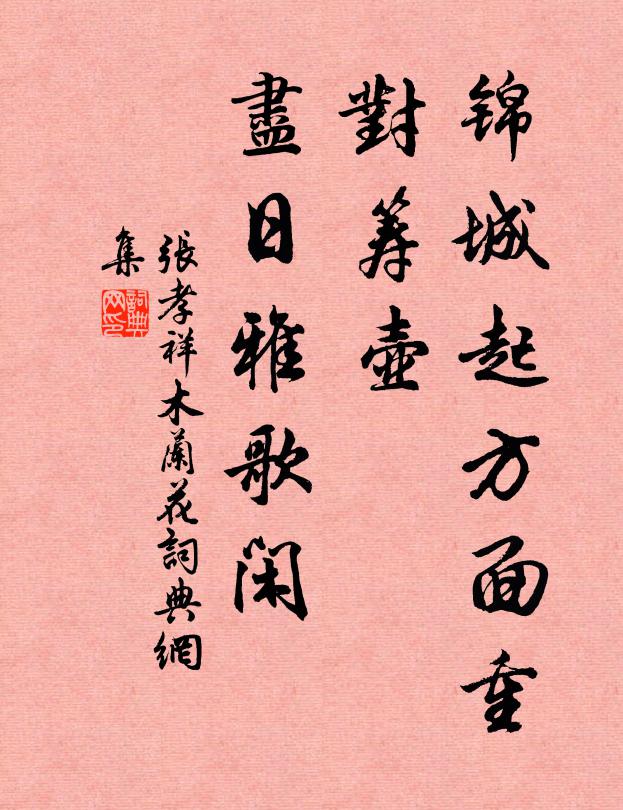 锦城起方面重
對筹壺
盡日雅歌閑
張孝祥木蘭花詞典網
集
詞典网印